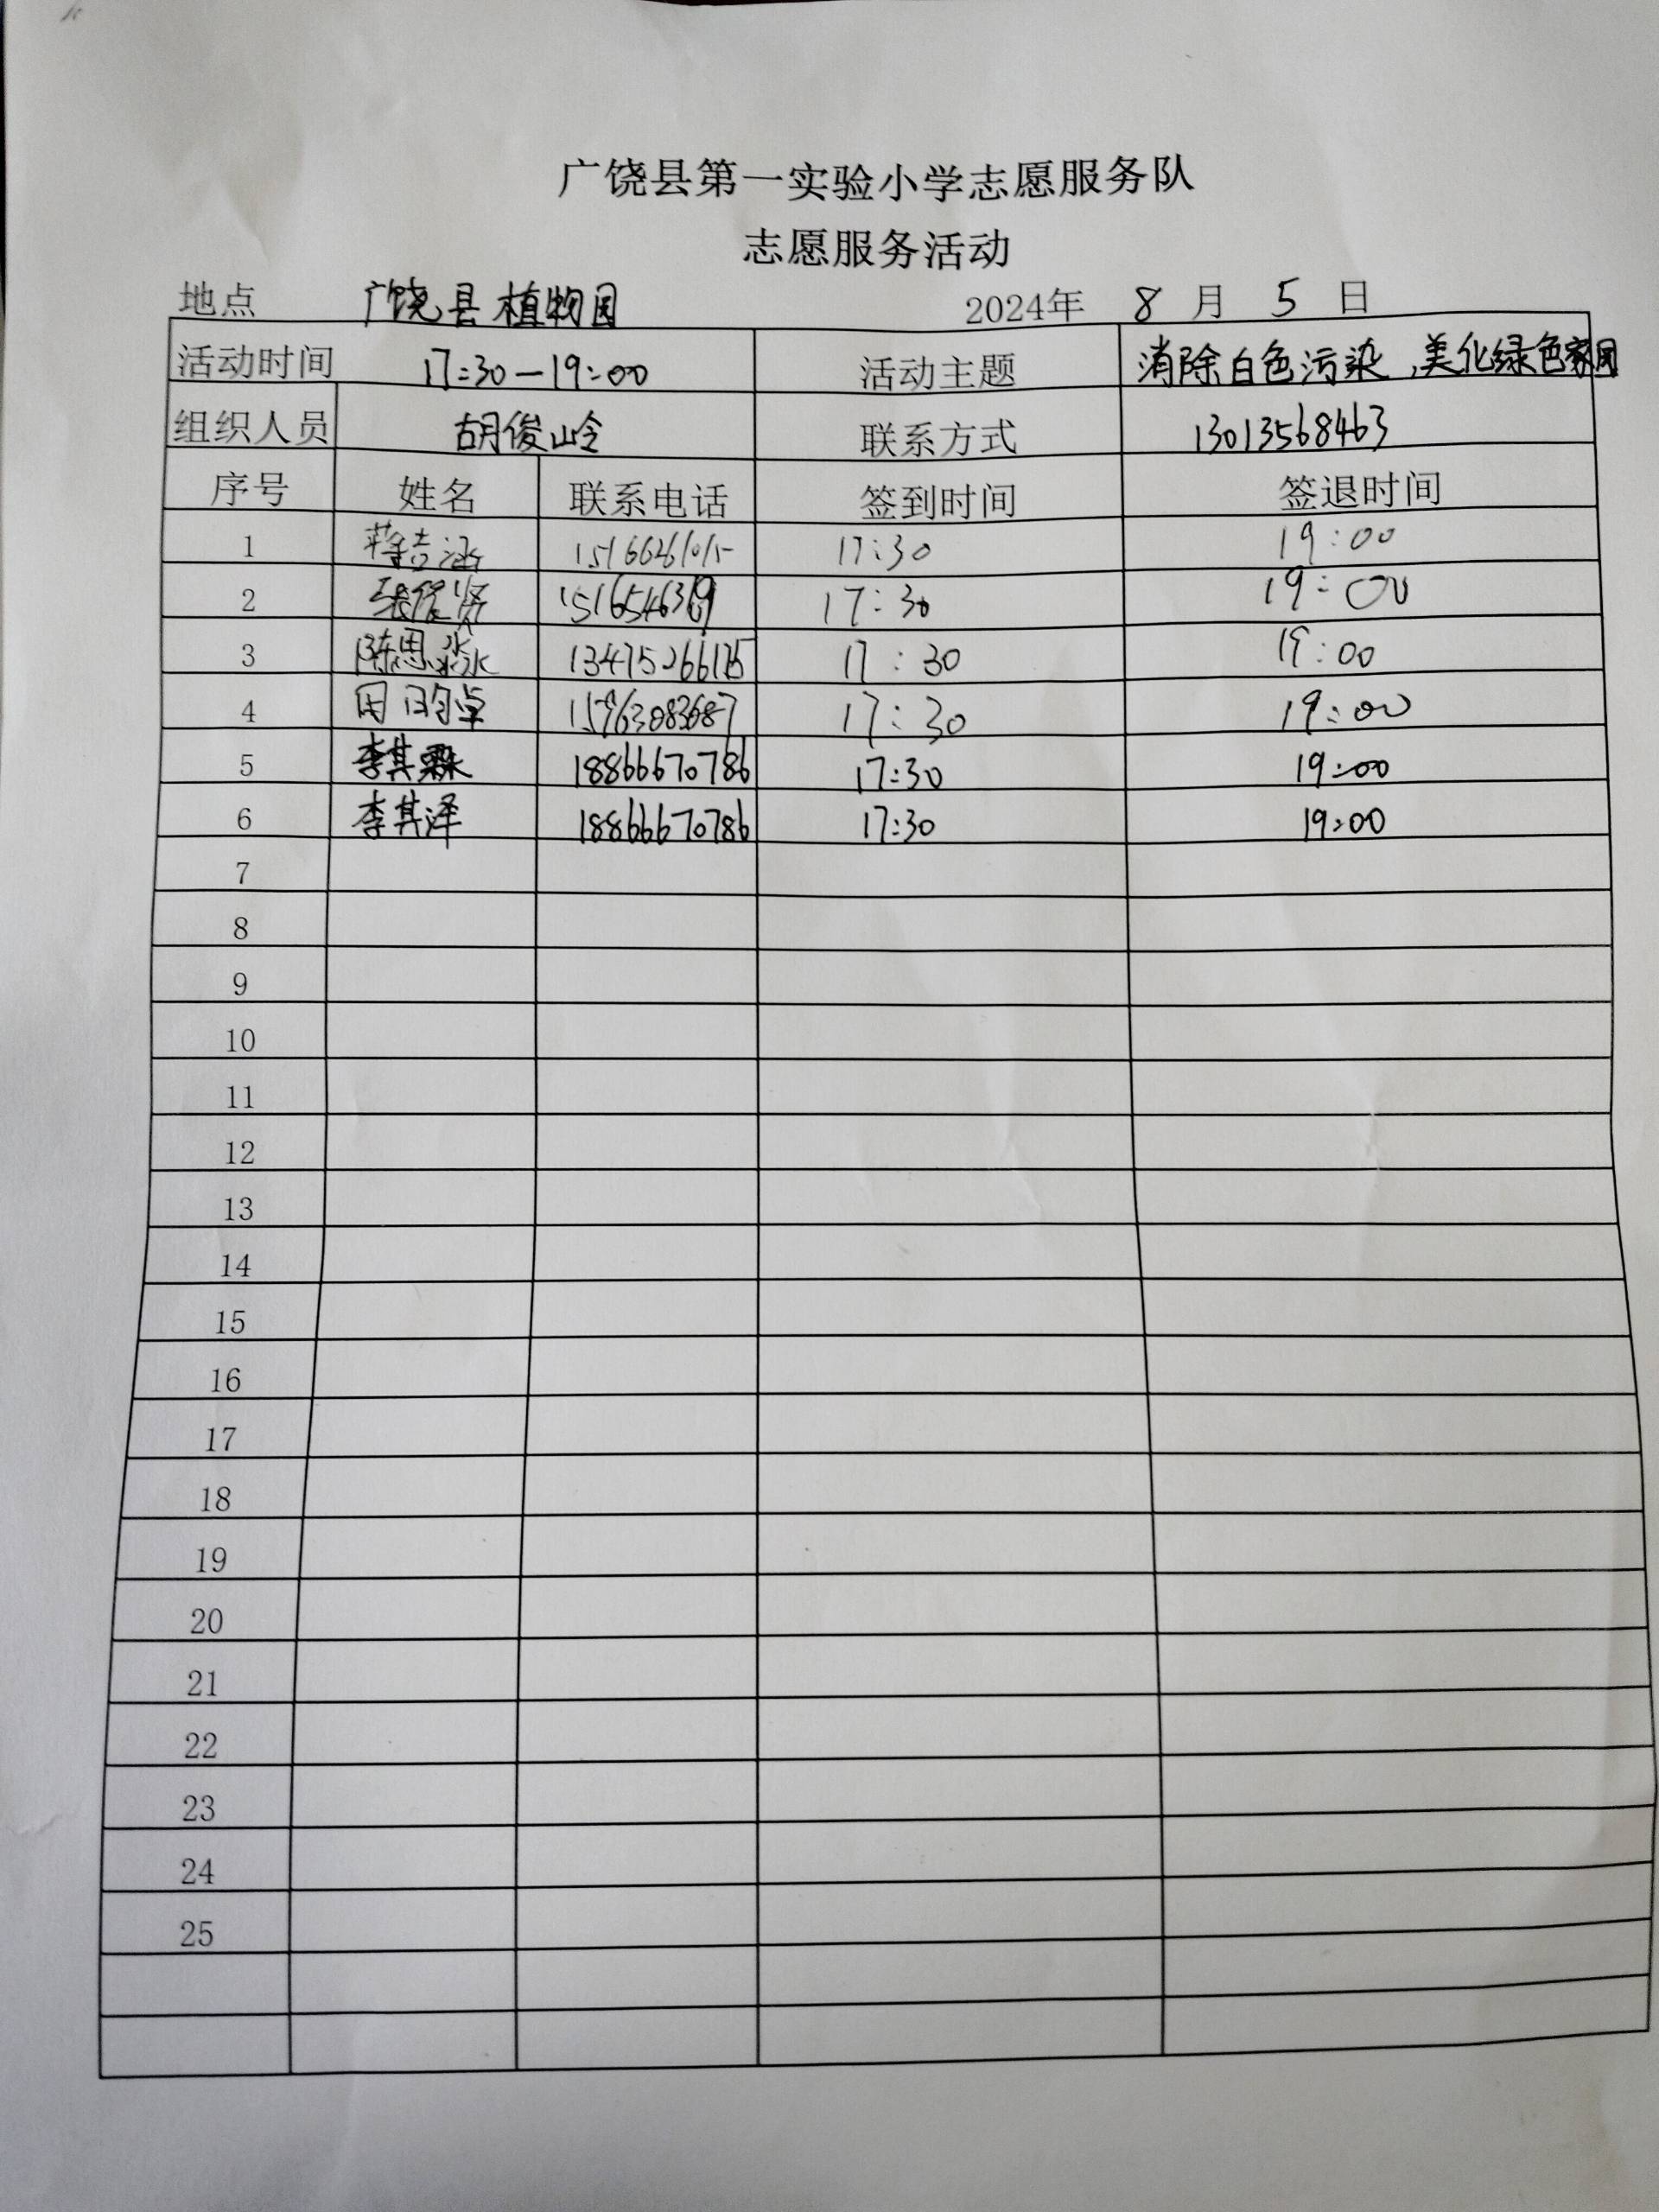 广饶县第一实验小学志愿服务队
志愿服务活动
地点 广饶县植物园 2024年 8 月 5 日
活动时间 17:30—19:00 活动主题 消除白色污染,美化绿色家园
组织人员 胡俊岭 联系方式 13013568463
序号 姓名 联系电话 签到时间 签退时间
1 蒋吉涵 17:30 19:00
2 17:30 19:00
3 陈思淼 17:30 19:00
4 15963083687 17:30 19:00
5 李其霖 18866670786 17:30 19:00
6 李其泽 18866670786 17:30 19:00
7
8
9
10
11
12
13
14
15
16
17
18
19
20
21
22
23
24
25